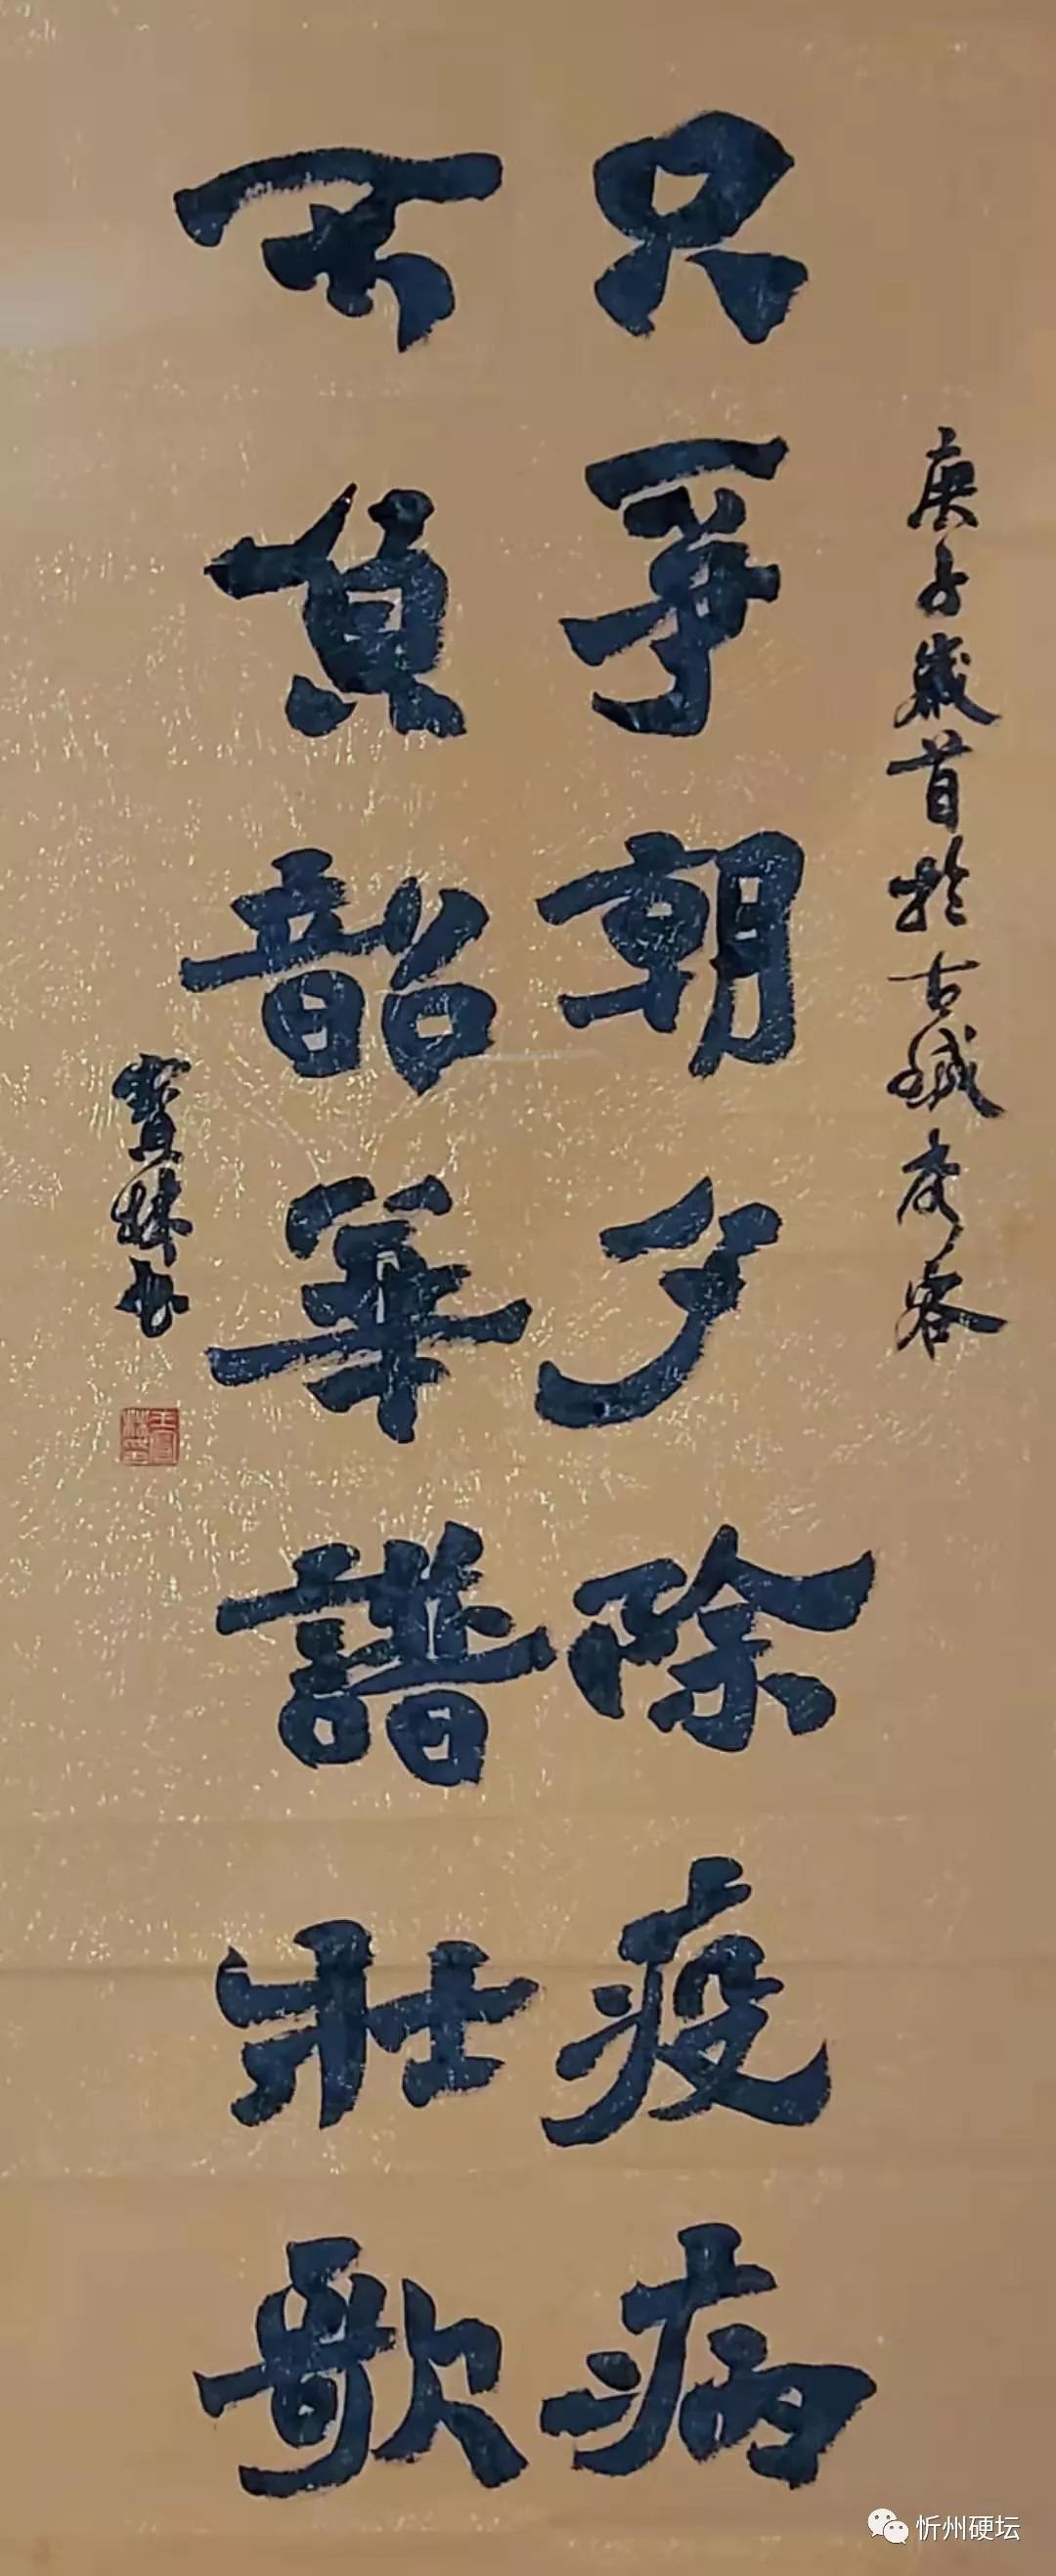 庚子歲首於古城秀容
只爭朝夕除疫病
不負韶華譜壯歌
寶林書
忻州硬坛